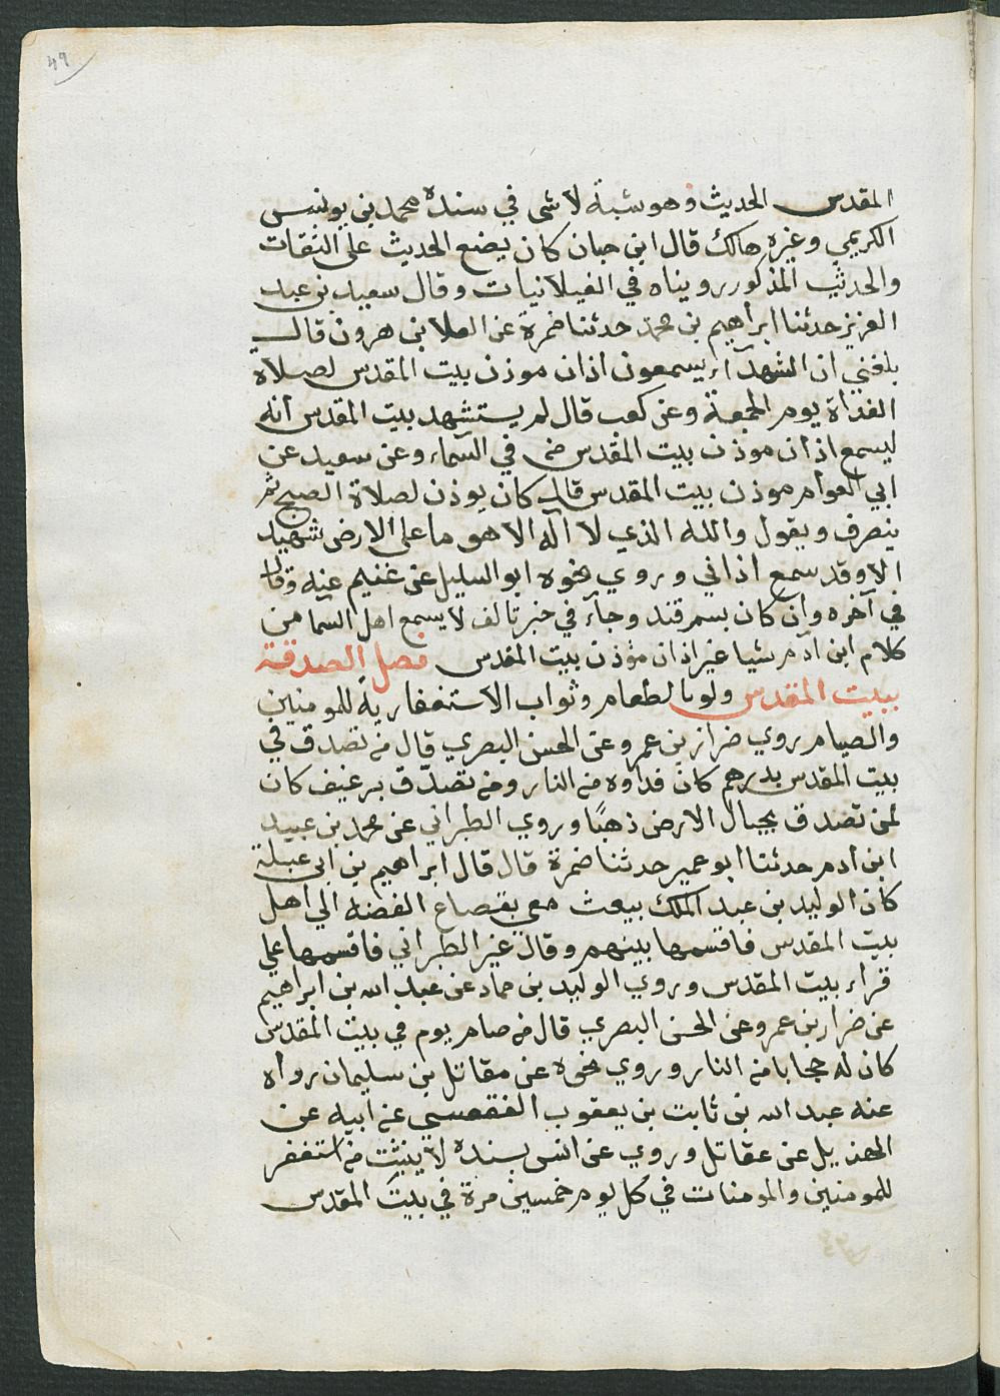 ٤٩
المقدس الحديث وهو شبه لا شى في سنده محمد بن يونس
الكريمي وغيره هالك قال ابن حبان كان يضع الحديث على الثقات
والحديث المذكور رويناه في الغيلانيات وقال سعيد بن عبد
العزيز حدثنا ابراهيم بن محمد حدثنا ضمرة عن العلا بن هرون قال
بلغني ان الشهدآء يسمعون اذان موذن بيت المقدس لصلاة
الغداة يوم الجمعة وعن كعب قال لم يستشهد ببيت المقدس انه
ليسمع اذان موذن بيت المقدس في السماء وعن سعيد عن
ابي العوام موذن بيت المقدس قال كان يوذن لصلاة الصبح ثم
ينصرف ويقول والله الذي لا اله الا هو ما على الارض شهيد
الا وقد سمع اذاني وروي نحوه ابو السليل عن غنيم عنه وقال
في آخره وان كان بسمرقند وجآء في خبر تالف لا يسمع اهل السما من
كلام ابن ادم شيا غير اذان مؤذن بيت المقدس فصل الصدقة
ببيت المقدس ولو بالطعام وثواب الاستغفار به للمومنين
والصيام روي ضرار بن عمرو عن الحسن البصري قال من تصدق في
بيت المقدس بدرهم كان فداوه من النار ومن تصدق برغيف كان
لمن تصدق بجبال الارض ذهبًا وروي الطبراني عن محمد بن عبيد
ابن ادم حدثنا ابو عمير حدثنا ضمرة قال قال ابراهيم بن ابى عبلة
كان الوليد بن عبد الملك يبعث معي بقصاع الفضه الي اهل
بيت المقدس فاقسمها بينهم وقال غير الطبراني فاقسمها علي
قراء بيت المقدس وروي الوليد بن حماد عن عبد الله بن ابراهيم
عن ضرار بن عمرو عن الحسن البصري قال من صام يوم في بيت المقدس
كان له حجابا من النار وروي نحوه عن مقاتل بن سليمان رواه
عنه عبد الله بن ثابت بن يعقوب الفقعسي عن ابيه عن
الهذيل عن عقاتل وروي عن انس بسنده لا يثبت من استغفر
للمومنين والمومنات في كل يوم خمسين مرة في بيت المقدس